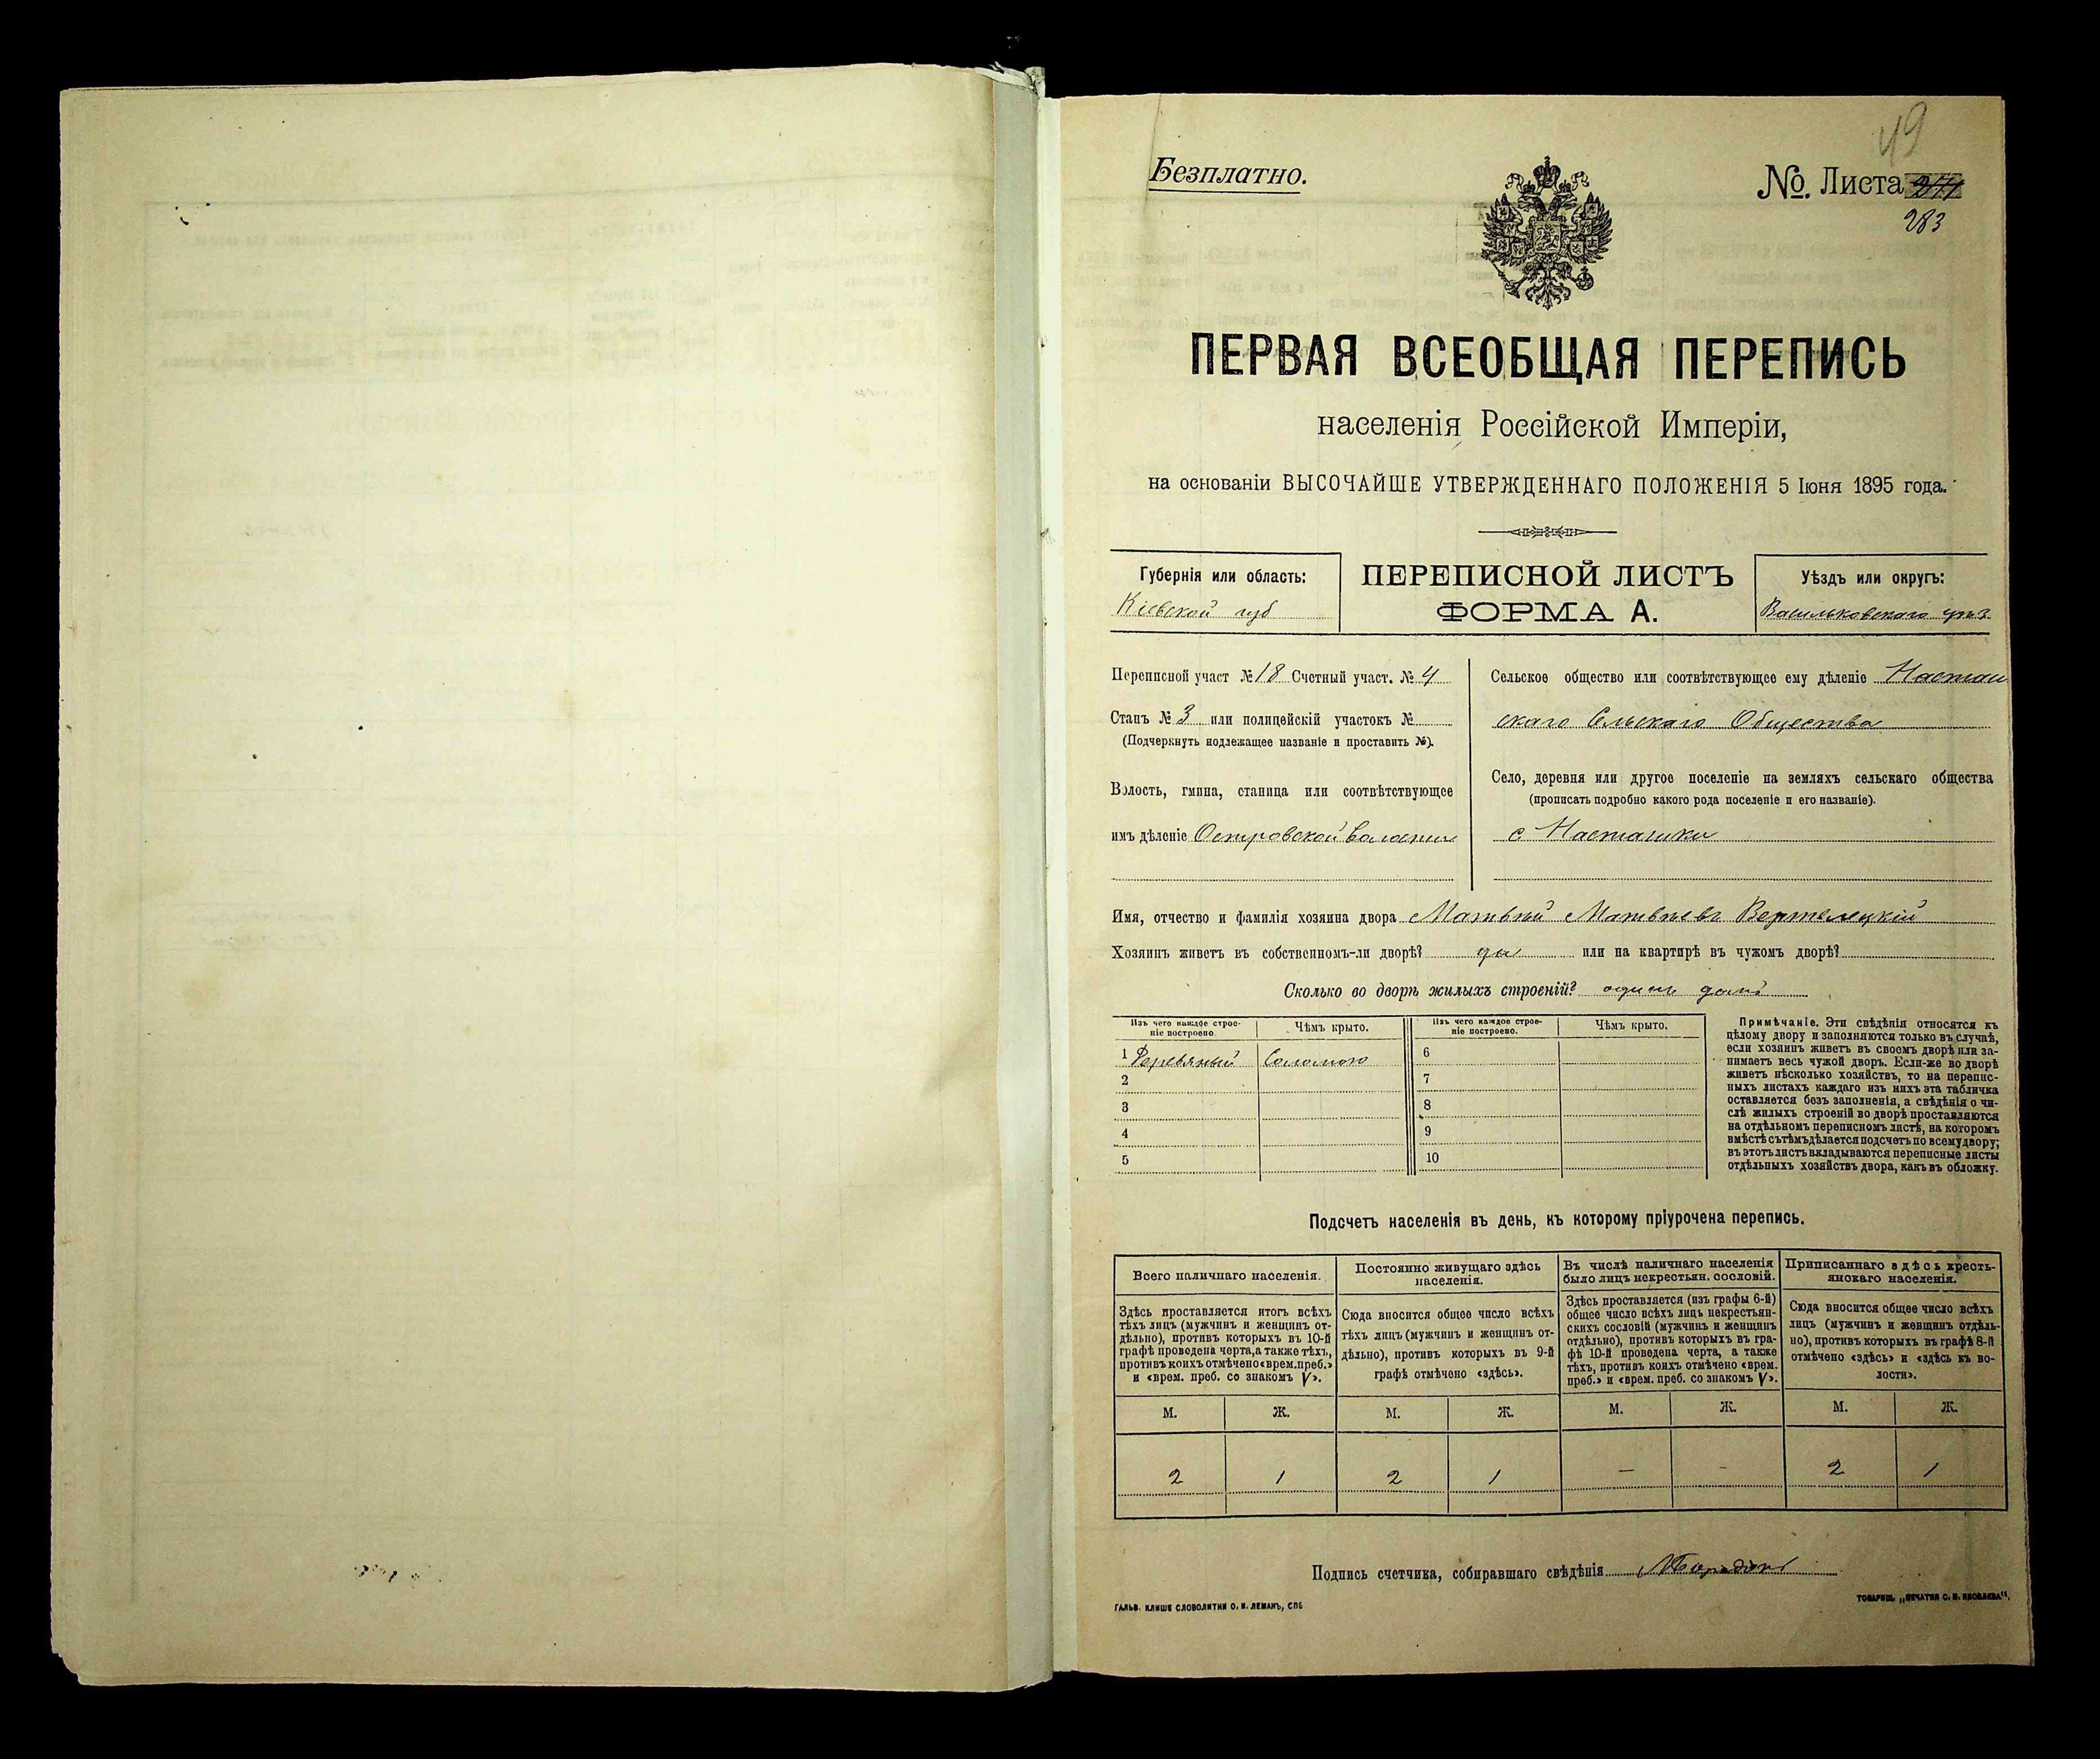 49
Безплатно.
№. Листа
283
ПЕРВАЯ ВСЕОБЩАЯ ПЕРЕПИСЬ
населенія Россійской Имперіи,
на основаніи ВЫСОЧАЙШЕ УТВЕРЖДЕННАГО ПОЛОЖЕНІЯ 5 Іюня 1895 года.
Губернія или область:
Кіевской губ
ПЕРЕПИСНОЙ ЛИСТЪ
ФОРМА А.
Уѣздъ или округъ:
Васильковскаго уѣз
Переписной участ №18 Счетный участ. № 4
Станъ № 3 или полицейскій участокъ №
(Подчеркнуть подлежащее названіе и проставить №).
Волость, гмина, станица или соотвѣтствующее
имъ дѣленіе Островской волости
Сельское общество или соотвѣтствующее ему дѣленіе Насташ
скаго Сельскаго Общества
Село, деревня или другое поселеніе на земляхъ сельскаго общества
(прописать подробно какого рода поселеніе и его названіе).
с Насташки
Имя, отчество и фамилія хозяина двора Матвѣй Матвѣевъ Вертелецкій
Хозяинъ живетъ въ собственномъ-ли дворѣ? да или на квартирѣ въ чужомъ дворѣ?
Сколько во дворѣ жилыхъ строеній? одинъ домъ
Изъ чего каждое строе-
ніе построено.
Чѣмъ крыто.
Изъ чего каждое строе-
ніе построено.
Чѣмъ крыто.
1 Деревяный Соломою 6
2 7
3 8
4 9
5 10
Примѣчаніе. Эти свѣдѣнія относятся къ
цѣлому двору и заполняются только въ случаѣ,
если хозяинъ живетъ въ своемъ дворѣ или за-
нимаетъ весь чужой дворъ. Если-же во дворѣ
живетъ нѣсколько хозяйствъ, то на перепис-
ныхъ листахъ каждаго изъ нихъ эта табличка
оставляется безъ заполненія, а свѣдѣнія о чи-
слѣ жилыхъ строеній во дворѣ проставляются
на отдѣльномъ переписномъ листѣ, на которомъ
вмѣстѣ съ тѣмъ дѣлается подсчетъ по всему двору;
въ этотъ листъ вкладываются переписные листы
отдѣльныхъ хозяйствъ двора, какъ въ обложку.
Подсчетъ населенія въ день, къ которому пріурочена перепись.
Всего наличнаго населенія.
Здѣсь проставляется итогъ всѣхъ
тѣхъ лицъ (мужчинъ и женщинъ от-
дѣльно), противъ которыхъ въ 10-й
графѣ проведена черта, а также тѣхъ,
противъ коихъ отмѣчено «врем. преб.»
и «врем. преб. со знакомъ V».
Постоянно живущаго здѣсь
населенія.
Сюда вносится общее число всѣхъ
тѣхъ лицъ (мужчинъ и женщинъ от-
дѣльно), противъ которыхъ въ 9-й
графѣ отмѣчено «здѣсь».
Въ числѣ наличнаго населенія
было лицъ некрестьян. сословій.
Здѣсь проставляется (изъ графы 6-й)
общее число всѣхъ лицъ некрестьян-
скихъ сословій (мужчинъ и женщинъ
отдѣльно), противъ которыхъ въ гра-
фѣ 10-й проведена черта, а также
тѣхъ, противъ коихъ отмѣчено «врем.
преб.» и «врем. преб. со знакомъ V».
Приписаннаго здѣсь кресть-
янскаго населенія.
Сюда вносится общее число всѣхъ
лицъ (мужчинъ и женщинъ отдѣль-
но), противъ которыхъ въ графѣ 8-й
отмѣчено «здѣсь» и «здѣсь къ во-
лости».
М. Ж. М. Ж. М. Ж. М. Ж.
2 1 2 1 — — 2 1
Подпись счетчика, собиравшаго свѣдѣнія
ГАЛЬВ. КЛИШЕ СЛОВОЛИТНИ О. И. ЛЕМАНЪ, СПБ
ТОВАРИЩ. „ПЕЧАТНЯ С. П. ЯКОВЛЕВА“.